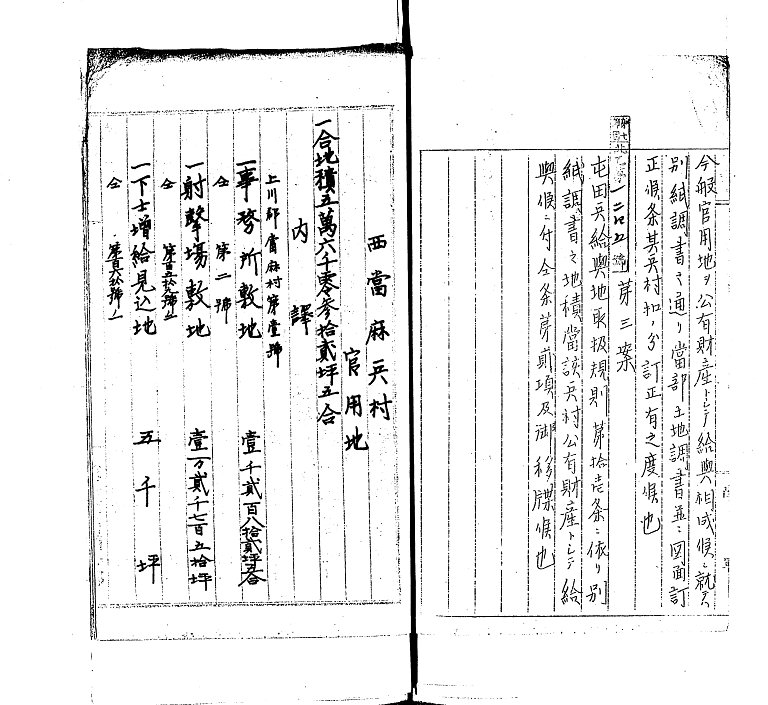 今般官用地ヲ公有財産トシテ給與相成候ニ就テハ
別紙調書之通リ當部土地調書並ニ図面訂
正候条其兵村扣ノ分訂正有之度候也
第三案
屯田兵給與地取扱規則第拾壱条ニ依リ別
紙調書之地積當該兵村公有財産トシテ給
與候ニ付仝条第貳項及御移牒候也
西當麻兵村
官用地
一合地積五萬六千零参拾貳坪五合
内譯
上川郡當麻村第壹號
一事務所敷地 壹千貳百八拾貳坪五合
仝 第二號
一射擊場敷地 壹万貳千七百五拾坪
仝
一下士增給見込地 五千坪
仝